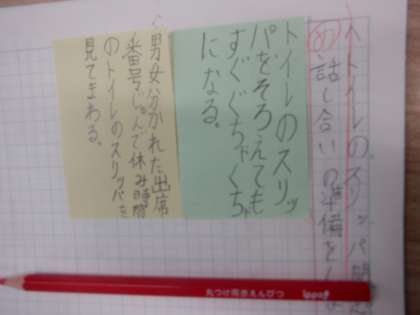 トイレのスリッパ問
め 話し合いの準備をし
トイレのスリッ
パをそろえても
すぐぐちゃぐちゃ
になる。
男女分かれた出席
番号じゅんで休み時間
のトイレのスリッパを
見てまわる。
丸つけ用赤えんぴつ ippo!